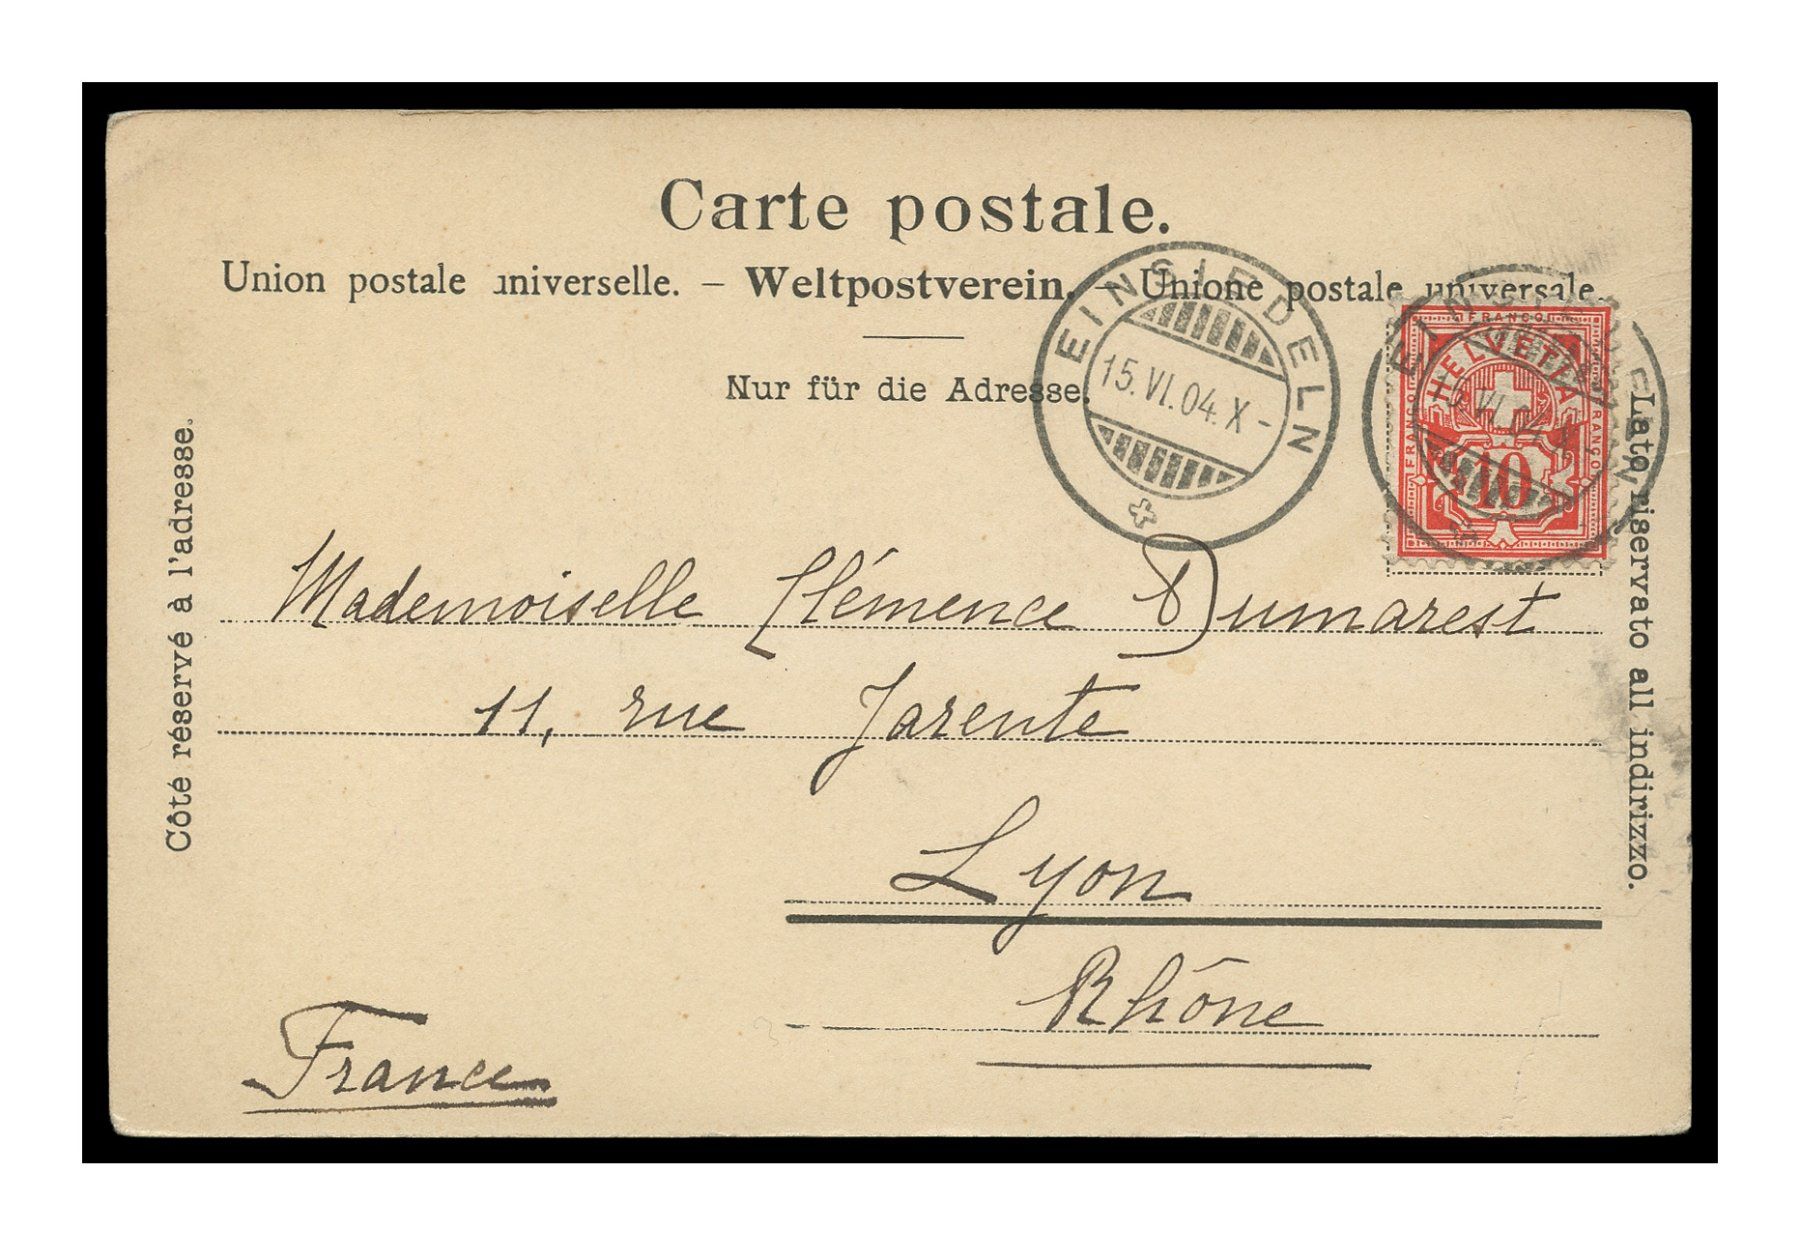 Carte postale.
Union postale universelle. – Weltpostverein. – Unione postale universale.
Nur für die Adresse.
EINSIEDELN
15.VI.04.X-
EINSIEDELN
15.VI.04.X
FRANCO
FRANCO
FRANCO
HELVETIA
10
Côté réservé à l'adresse.
Lato riservato all indirizzo.
Mademoiselle Clémence Dumarest
11, rue Jarente
Lyon
Rhône
France